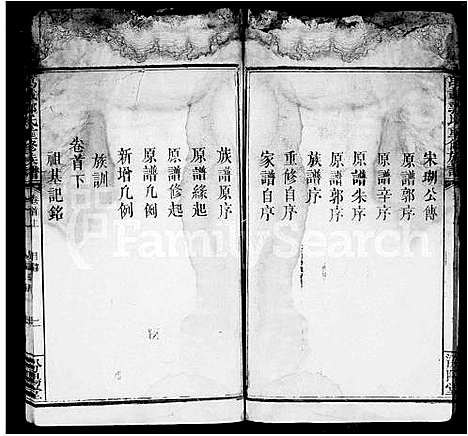 宋瑚公傳
原譜郭序
原譜辛序
原譜朱序
原譜郭序
族譜序
重修自序
家譜自序
族譜原序
原譜緣起
原譜修起
原譜凡例
新增凡例
族訓
卷首下
祖基記銘
卷首上
FamilySearch